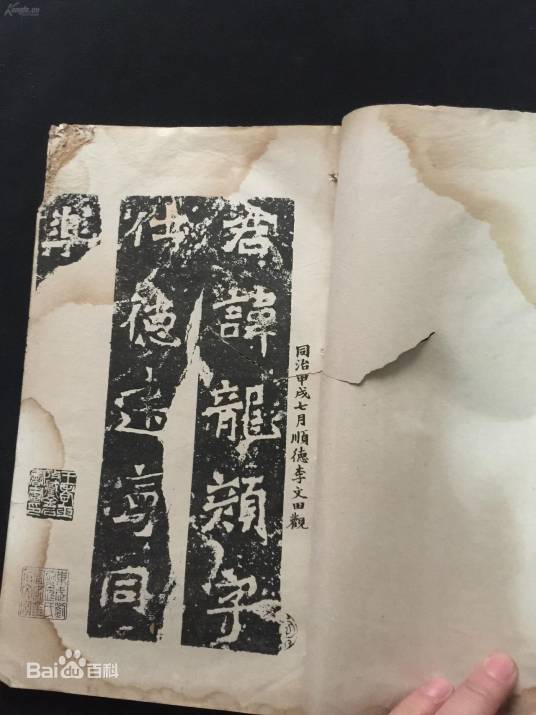 同治甲戌七月順德李文田觀
君諱龍顏字
仕德建寧同
樂
Bai百科